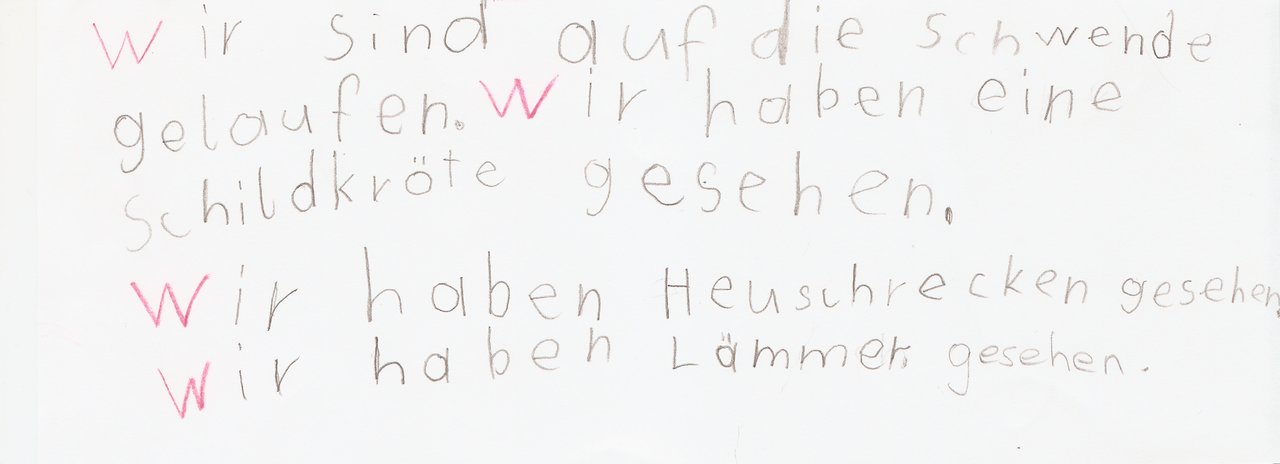 Wir sind auf die Schwende
gelaufen. Wir haben eine
Schildkröte gesehen.
Wir haben Heuschrecken gesehen.
Wir haben Lämmer gesehen.